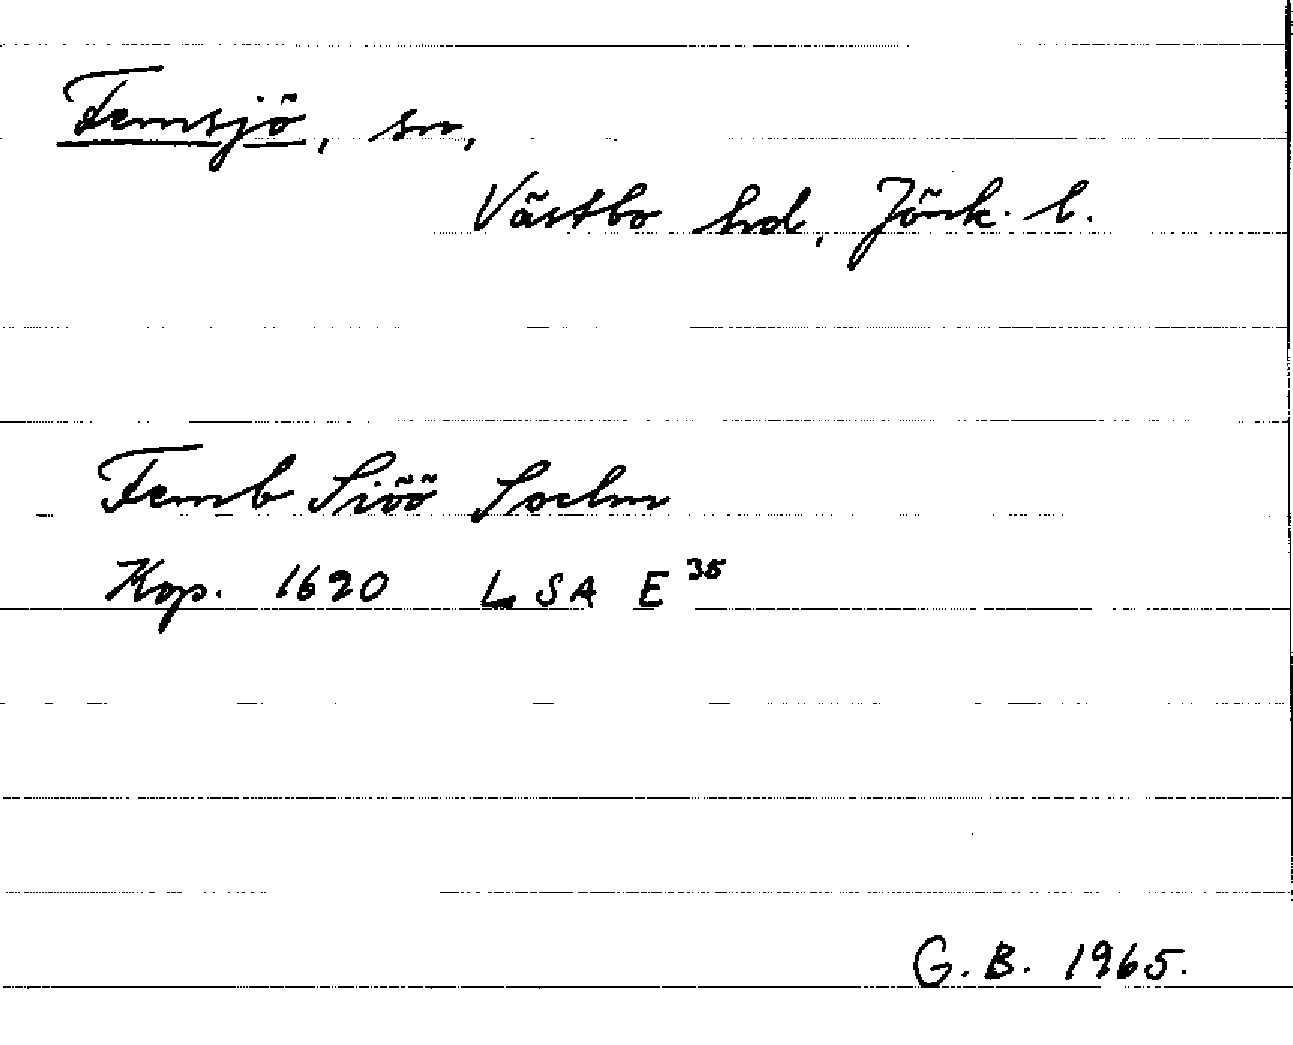 Femsjö, sn,
Västbo hd, Jönk. l.
Femb Siöö Sochn
Kop. 1620 LSA E 35
G. B. 1965.